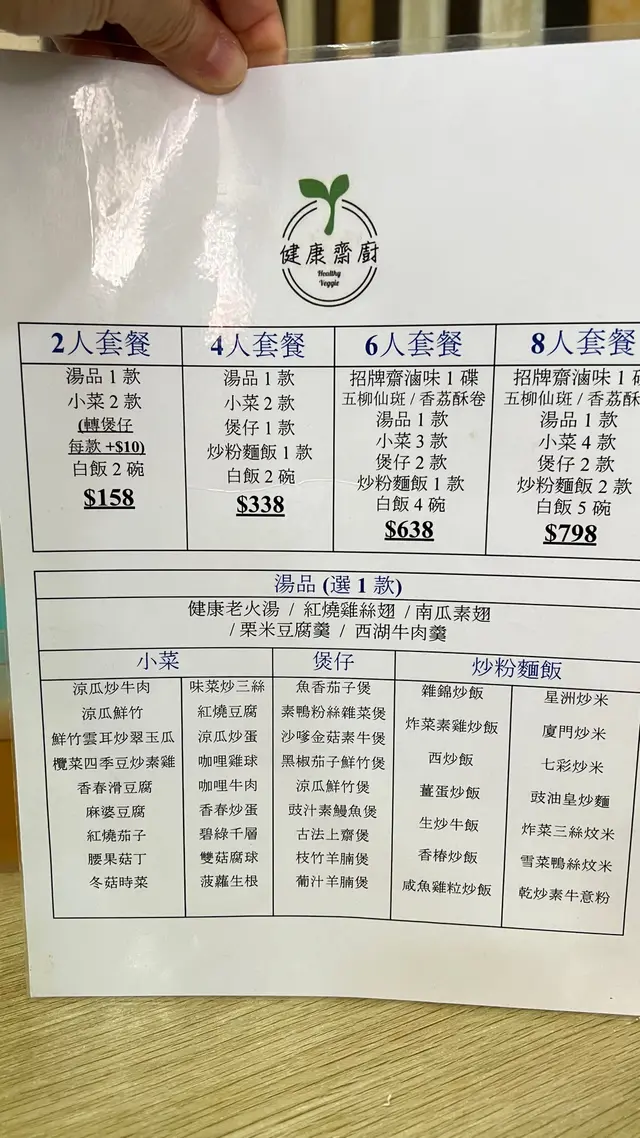 健康齋廚
Healthy
Veggie
2人套餐
湯品 1 款
小菜 2 款
(轉煲仔
每款 +$10)
白飯 2 碗
$158
4人套餐
湯品 1 款
小菜 2 款
煲仔 1 款
炒粉麵飯 1 款
白飯 2 碗
$338
6人套餐
招牌齋滷味 1 碟
五柳仙斑 / 香荔酥卷
湯品 1 款
小菜 3 款
煲仔 2 款
炒粉麵飯 1 款
白飯 4 碗
$638
8人套餐
招牌齋滷味 1
五柳仙斑 / 香荔酥
湯品 1 款
小菜 4 款
煲仔 2 款
炒粉麵飯 2 款
白飯 5 碗
$798
湯品 (選 1 款)
健康老火湯 / 紅燒雞絲翅 / 南瓜素翅
/ 栗米豆腐羹 / 西湖牛肉羹
小菜
涼瓜炒牛肉
涼瓜鮮竹
鮮竹雲耳炒翠玉瓜
欖菜四季豆炒素雞
香春滑豆腐
麻婆豆腐
紅燒茄子
腰果菇丁
冬菇時菜
味菜炒三絲
紅燒豆腐
涼瓜炒蛋
咖哩雞球
咖哩牛肉
香春炒蛋
碧綠千層
雙菇腐球
菠蘿生根
煲仔
魚香茄子煲
素鴨粉絲雜菜煲
沙嗲金菇素牛煲
黑椒茄子鮮竹煲
涼瓜鮮竹煲
豉汁素鰻魚煲
古法上齋煲
枝竹羊腩煲
葡汁羊腩煲
炒粉麵飯
雜錦炒飯
炸菜素雞炒飯
西炒飯
薑蛋炒飯
生炒牛飯
香椿炒飯
咸魚雞粒炒飯
星洲炒米
廈門炒米
七彩炒米
豉油皇炒麵
炸菜三絲炆米
雪菜鴨絲炆米
乾炒素牛意粉